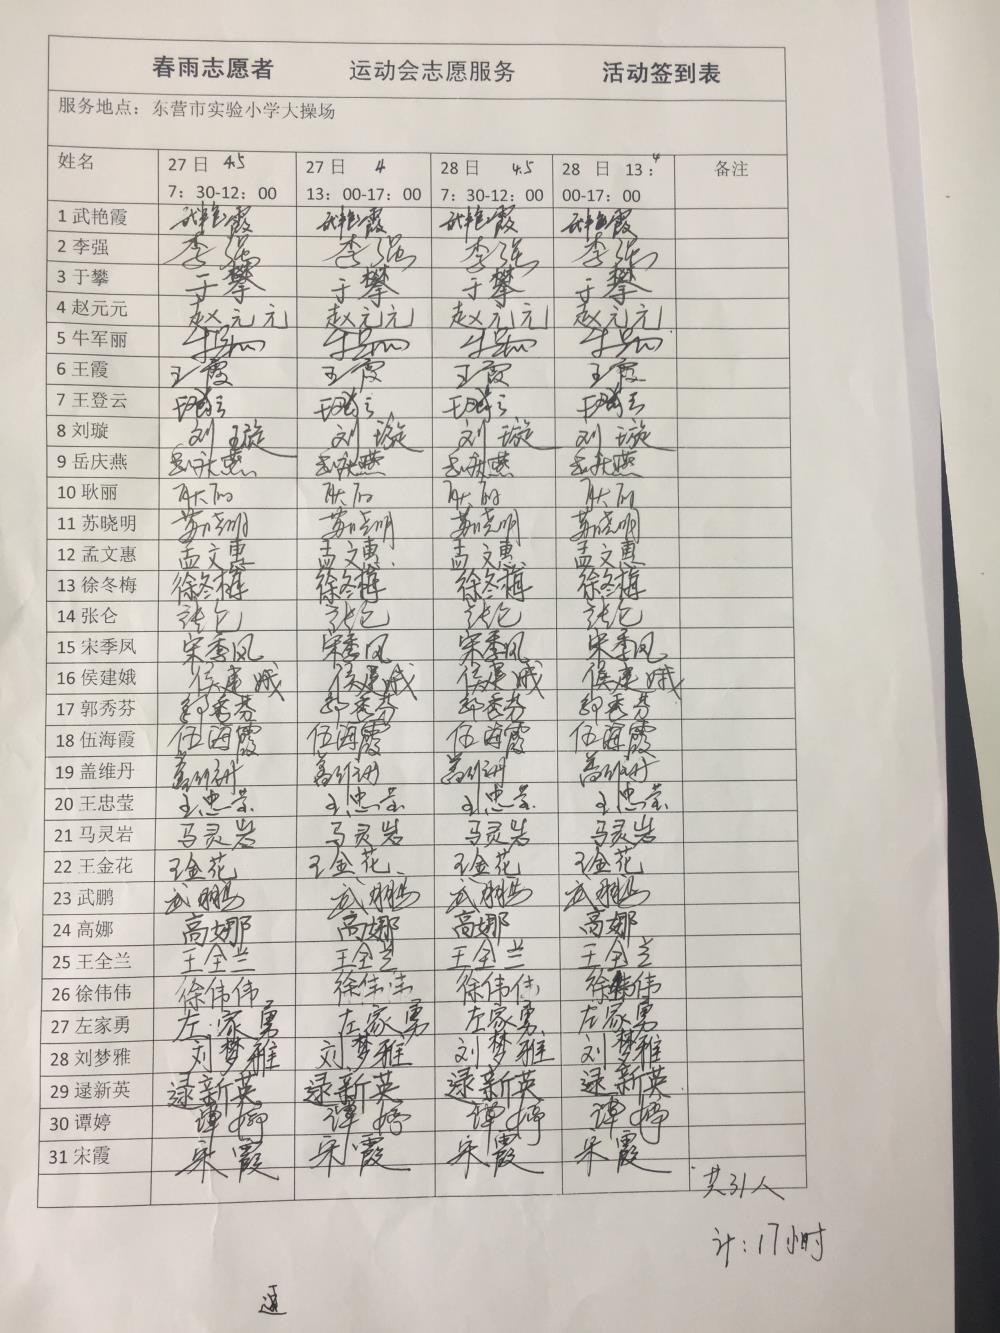 春雨志愿者 运动会志愿服务 活动签到表
服务地点：东营市实验小学大操场
姓名 27日 4.5 27日 4 28日 4.5 28 日 13： 4 备注
7：30-12：00 13：00-17：00 7：30-12：00 00-17：00
1 武艳霞 武艳霞 武艳霞 武艳霞 武艳霞
2 李强 李强 李强 李强 李强
3 于攀 于攀 于攀 于攀 于攀
4 赵元元 赵元元 赵元元 赵元元 赵元元
5 牛军丽 牛军丽 牛军丽 牛军丽 牛军丽
6 王霞 王霞 王霞 王霞 王霞
7 王登云 王登云 王登云 王登云 王登云
8 刘璇 刘璇 刘璇 刘璇 刘璇
9 岳庆燕 岳庆燕 岳庆燕 岳庆燕 岳庆燕
10 耿丽 耿丽 耿丽 耿丽 耿丽
11 苏晓明 苏晓明 苏晓明 苏晓明 苏晓明
12 孟文惠 孟文惠 孟文惠 孟文惠 孟文惠
13 徐冬梅 徐冬梅 徐冬梅 徐冬梅 徐冬梅
14 张仑 张仑 张仑 张仑 张仑
15 宋季凤 宋季凤 宋季凤 宋季凤 宋季凤
16 侯建娥 侯建娥 侯建娥 侯建娥 侯建娥
17 郭秀芬 郭秀芬 郭秀芬 郭秀芬 郭秀芬
18 伍海霞 伍海霞 伍海霞 伍海霞 伍海霞
19 盖维丹 盖维丹 盖维丹 盖维丹 盖维丹
20 王忠莹 王忠莹 王忠莹 王忠莹 王忠莹
21 马灵岩 马灵岩 马灵岩 马灵岩 马灵岩
22 王金花 王金花 王金花 王金花 王金花
23 武鹏 武鹏 武鹏 武鹏 武鹏
24 高娜 高娜 高娜 高娜 高娜
25 王全兰 王全兰 王全兰 王全兰 王全兰
26 徐伟伟 徐伟伟 徐伟伟 徐伟伟 徐伟伟
27 左家勇 左家勇 左家勇 左家勇 左家勇
28 刘梦雅 刘梦雅 刘梦雅 刘梦雅 刘梦雅
29 逯新英 逯新英 逯新英 逯新英 逯新英
30 谭婷 谭婷 谭婷 谭婷 谭婷
31 宋霞 宋霞 宋霞 宋霞 宋霞
共31人
计：17小时